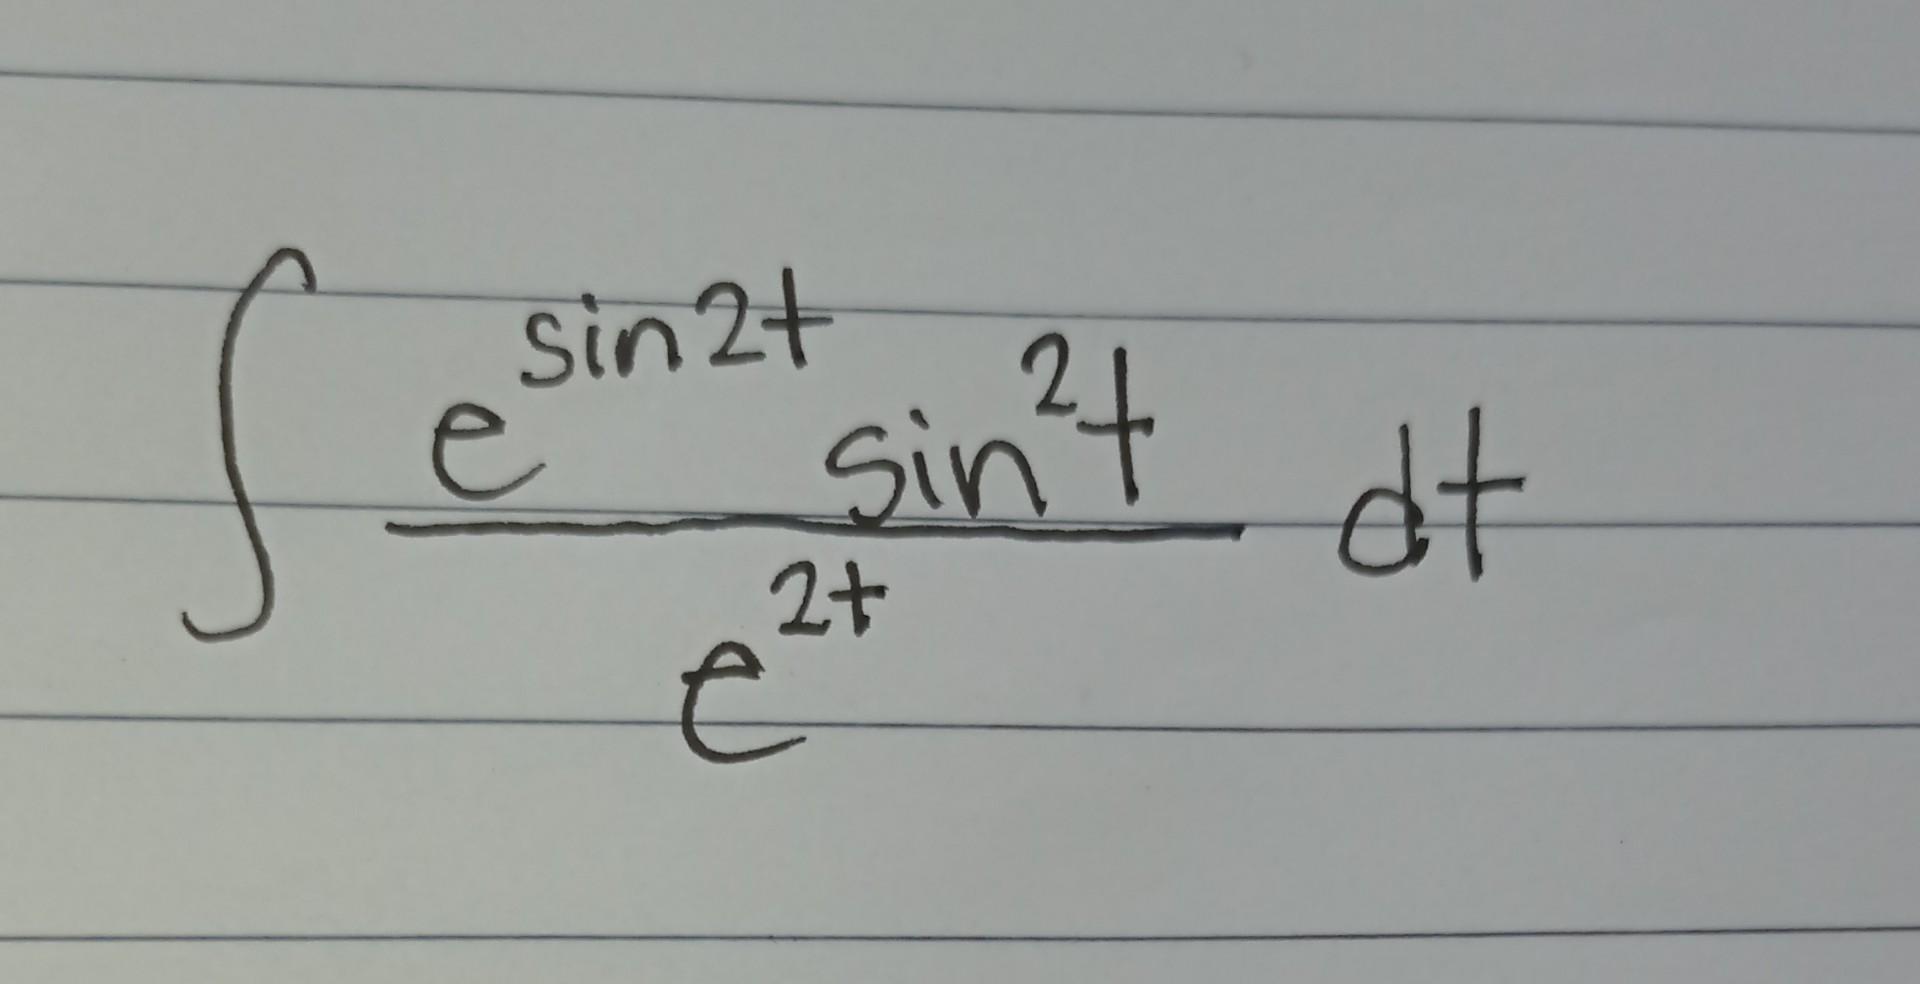 ∫ e^{sin2t} sin²t / e^{2t} dt